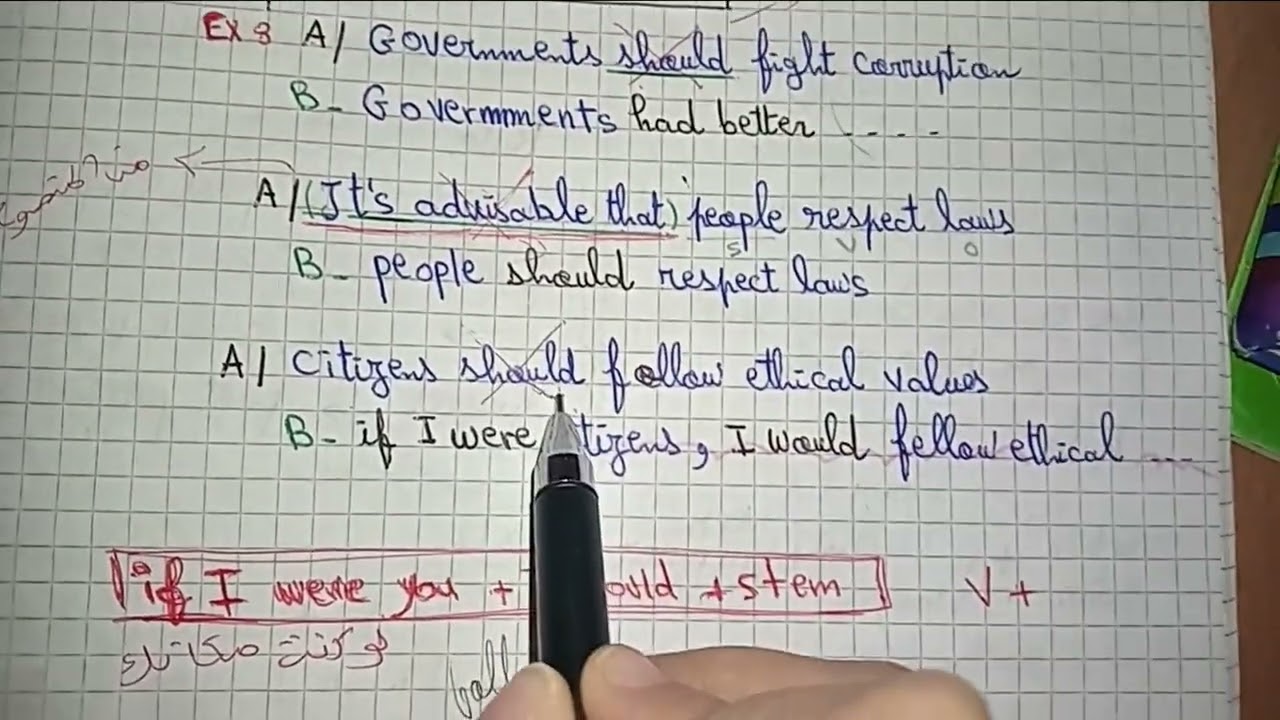 EX 8 A/ Governments should fight corruption
B- Govermments had better ----
A/ (It's advisable that) people respect laws
S V O
B- people should respect laws
A/ Citizens should follow ethical values
B- if I were tizens, I would fellow ethical ---
if I were you + ould + stem V +
لو كنت مكانك